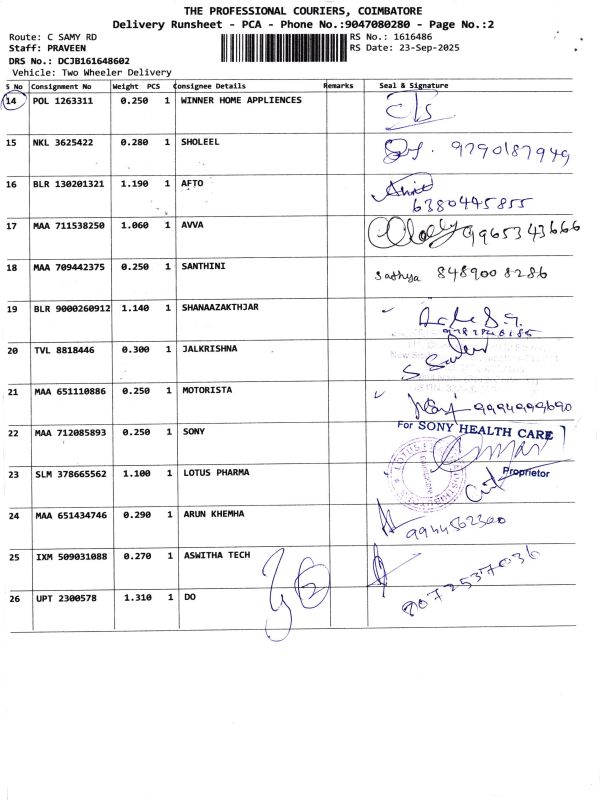 THE PROFESSIONAL COURIERS, COIMBATORE
Delivery Runsheet - PCA - Phone No.:9047080280 - Page No.:2
Route: C SAMY RD RS No.: 1616486
Staff: PRAVEEN RS Date: 23-Sep-2025
DRS No.: DCJB161648602
Vehicle: Two Wheeler Delivery
S No Consignment No Weight PCS Consignee Details Remarks Seal & Signature
14 POL 1263311 0.250 1 WINNER HOME APPLIENCES
15 NKL 3625422 0.280 1 SHOLEEL 9790187949
16 BLR 130201321 1.190 1 AFTO
6380445855
17 MAA 711538250 1.060 1 AVVA 9965343666
18 MAA 709442375 0.250 1 SANTHINI Sathya 8489008286
19 BLR 9000260912 1.140 1 SHANAAZAKTHJAR
20 TVL 8818446 0.300 1 JALKRISHNA
21 MAA 651110886 0.250 1 MOTORISTA 9994999690
22 MAA 712085893 0.250 1 SONY For SONY HEALTH CARE
Proprietor
23 SLM 378665562 1.100 1 LOTUS PHARMA LOTUS
24 MAA 651434746 0.290 1 ARUN KHEMHA 9944562300
25 IXM 509031088 0.270 1 ASWITHA TECH
8072537036
26 UPT 2300578 1.310 1 DO